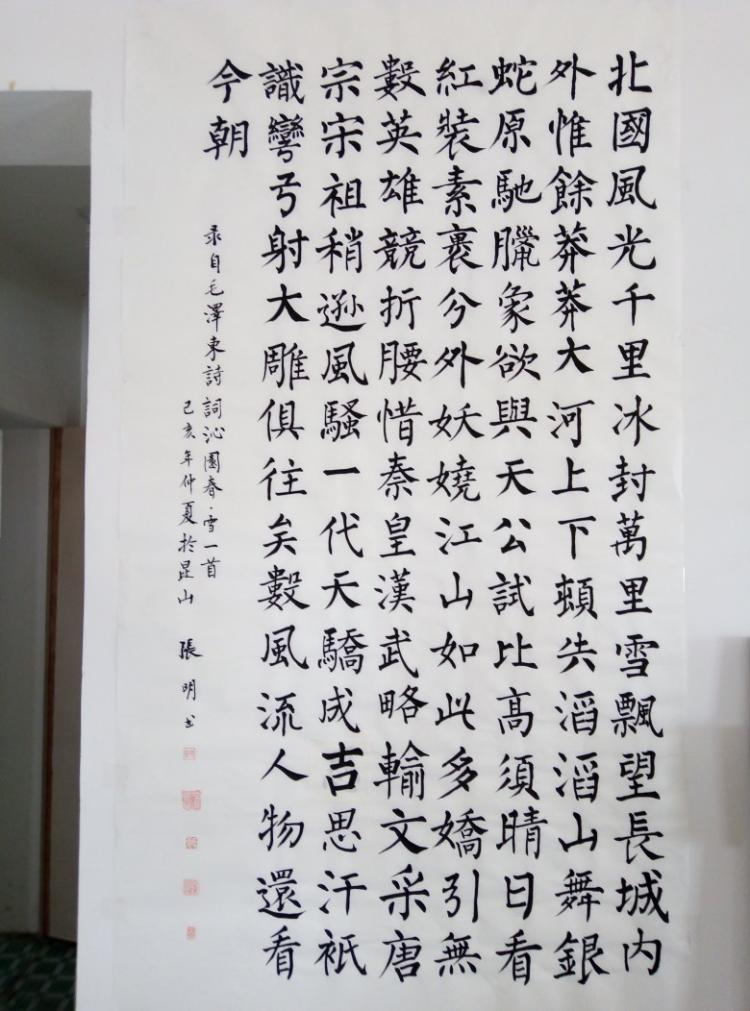 北國風光千里冰封萬里雪飄望長城内
外惟餘莽莽大河上下頓失滔滔山舞銀
蛇原馳臘象欲與天公試比高須晴日看
紅裝素裹兮外妖嬈江山如此多嬌引無
數英雄競折腰惜秦皇漢武略輸文采唐
宗宋祖稍遜風騷一代天驕成吉思汗祇
識彎弓射大雕俱往矣數風流人物還看
今朝
录自毛澤東詩詞沁園春·雪一首
己亥年仲夏於昆山 張明书